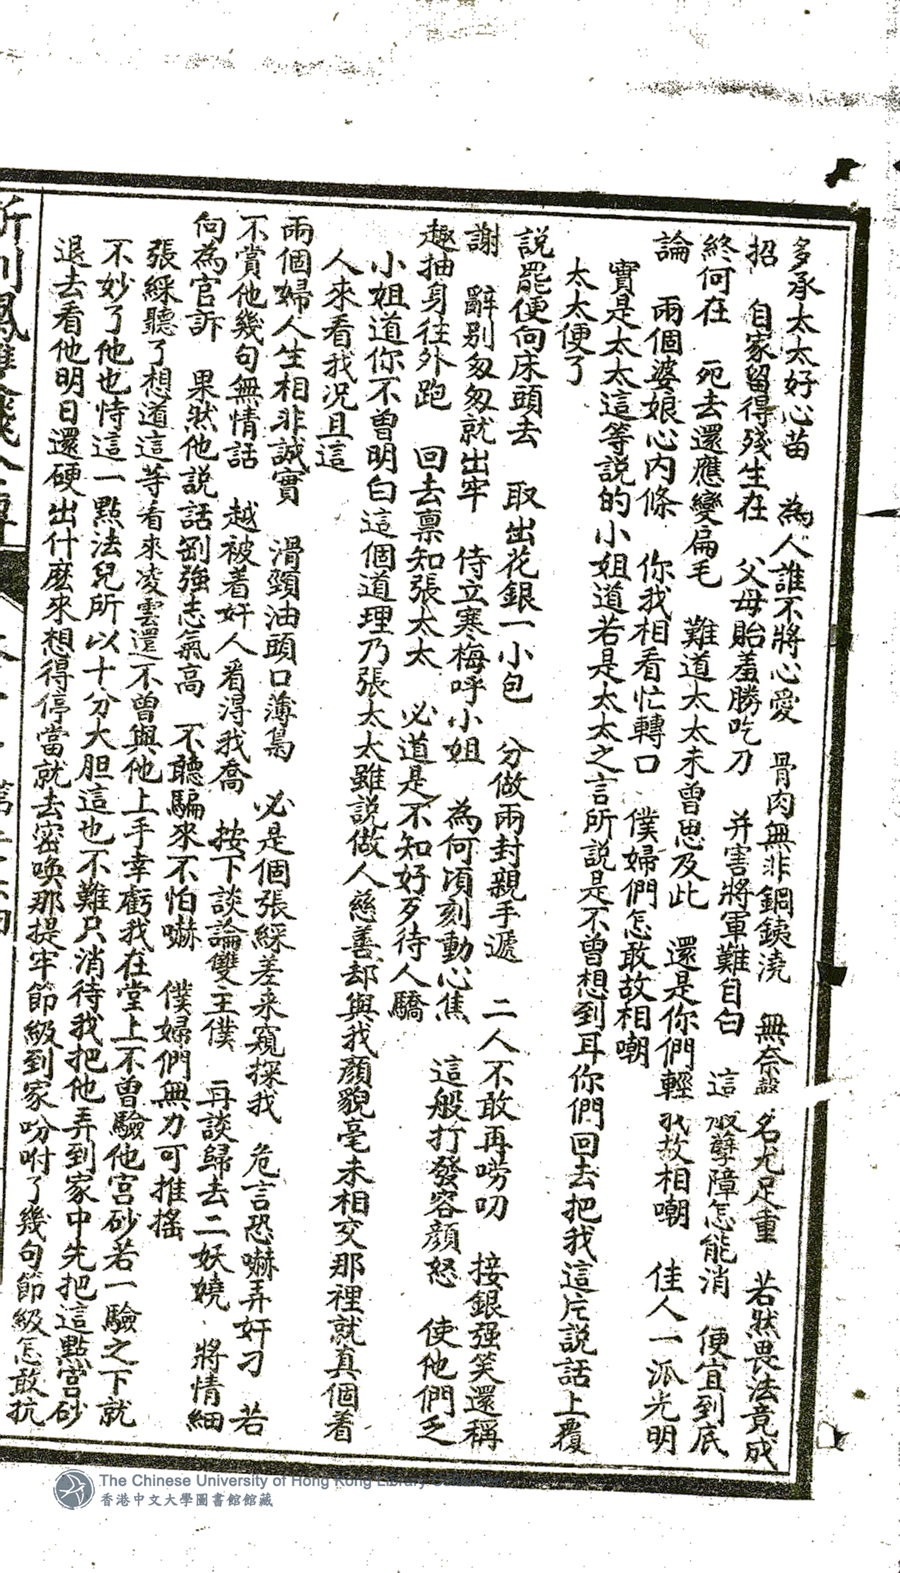 多承太太好心苗　為人誰不將心愛　骨肉無非鋼銕澆　無奈 名尤足重　若然畏法竟成
招　自家留得殘生在　父母貽羞勝吃刀　并害將軍難自白　這 孽障怎能消　便宜到底
終何在　死去還應變扁毛　難道太太未曾思及此　還是你們輕我故相嘲　佳人一派光明
論　兩個婆娘心內條　你我相看忙轉口　僕婦們怎敢故相嘲
實是太太這等說的小姐道若是太太之言所說是不曾想到耳你們回去把我這片說話上覆
太太便了
說罷便向床頭去　取出花銀一小包　分做兩封親手遞　二人不敢再嘮叨　接銀强笑還稱
謝　辭別匆匆就出牢　侍立寒梅呼小姐　為何頃刻動心焦　這般打發容顏怒　使他們乏
趣抽身往外跑　回去禀知張太太　必道是不知好歹待人驕
小姐道你不曾明白這個道理乃張太太雖說做人慈善却與我顏貌毫未相交那裡就真個着
人來看我况且這
兩個婦人生相非誠實　滑頸油頭口薄梟　必是個張綵差來窺探我　危言恐嚇弄奸刁　若
不賞他幾句無情話　越被着奸人看淂我喬　按下談論雙王僕　再談歸去二妖嬈　將情細
向為官訴　果然他説話剳強志氣高　不聽騙來不怕嚇　僕婦們無力可推搖
張綵聽了想道這等看來凌雲還不曾與他上手幸虧我在堂上不曾驗他宮砂若一驗之下就
不妙了他也恃這一點法兒所以十分大胆這也不難只消待我把他弄到家中先把這點宮砂
退去看他明日還硬出什麽來想得停當就去密喚那提牢節級到家吩咐了幾句節級怎敢抗
The Chinese University of Hong Kong Library
香港中文大學圖書館館藏